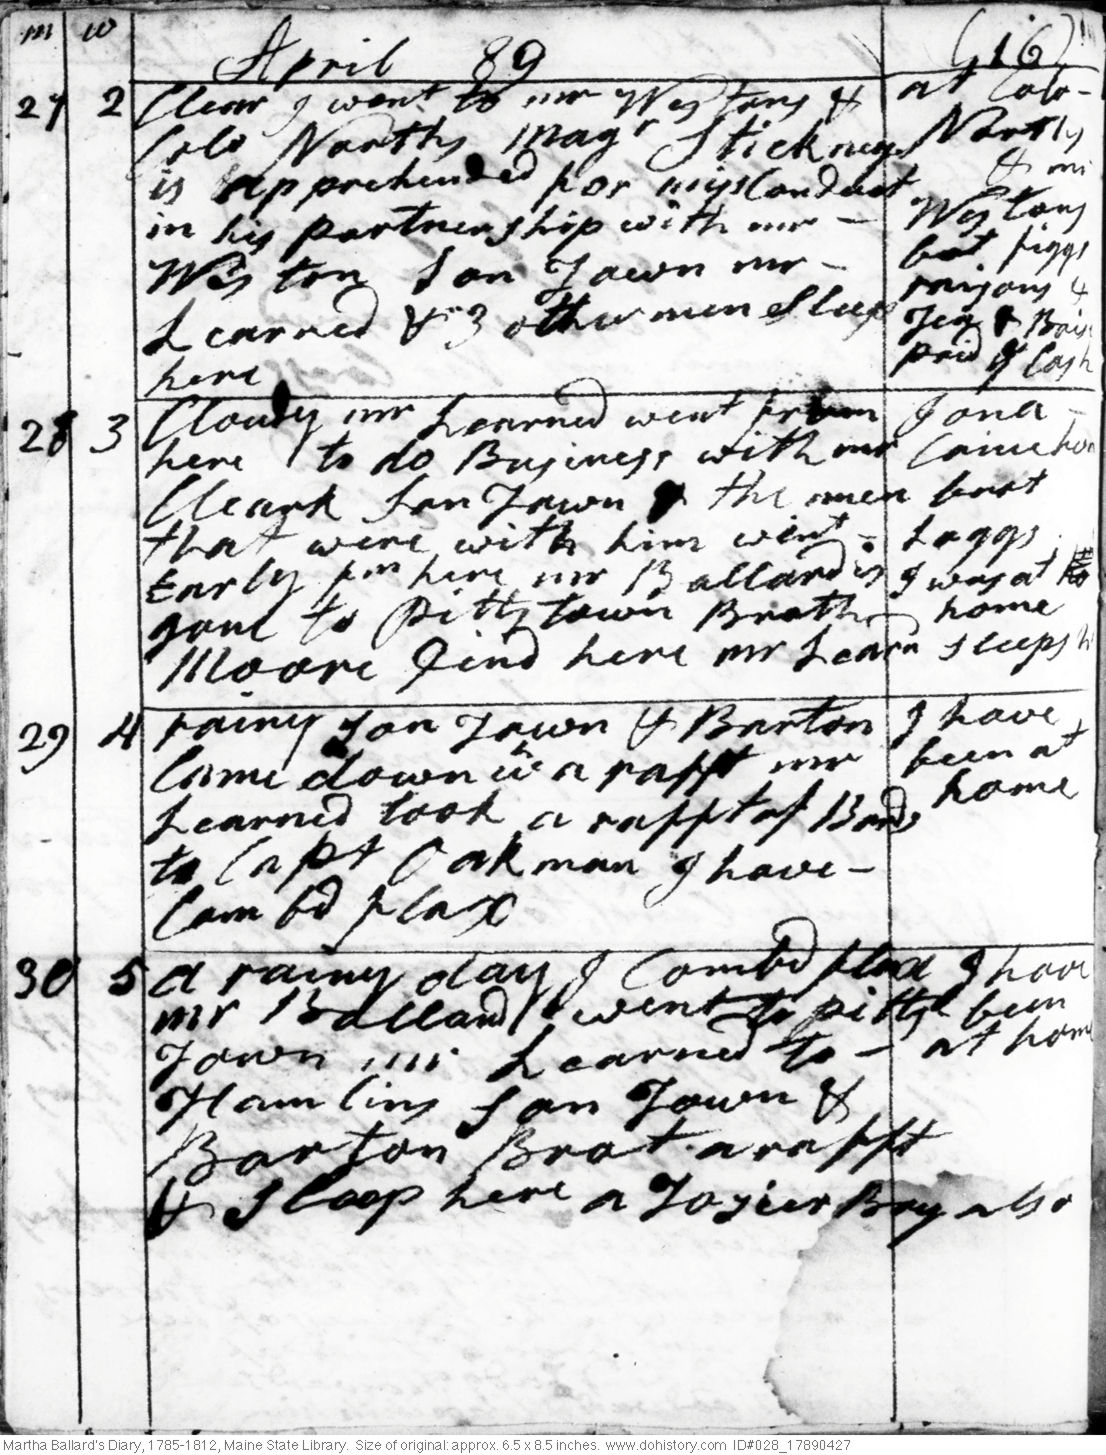 m w
April 89 (16)
27 2 Clear I went to mr Westons &
Colo Norths Magr Stickney
is apprehended for misConduct
in his partnership with mr -
Weston Son Town mr -
Learned & 3 other men Sleep
here
at Colo-
Norths
& mr
Westons
bot figgs
raisons &
Tea &
paid by Cash
28 3 Cloudy mr Learned went from
here to do Business with mr
Cleark Son Town & the men
that were with him went -
Early fm here mr Ballard is
gone to Pittstown Broth
Moore Dind here mr Learn
Jona -
Came hom
brot
Loggs
I was at
home
sleeps h
29 4 rainy Son Town & Barton
Came down wh a rafft mr
Learned took a rafft of Bords
to Capt Oakman I have -
Combd flax
I have
been at
home
30 5 a rainy day I Combd flax
mr Ballard went to pitts
Town mr Learned to -
Hamlins Son Town &
Barton Brot a rafft
& Sleep here a Tozier Boy also
I have
been
at home
Martha Ballard's Diary, 1785-1812, Maine State Library. Size of original: approx. 6.5 x 8.5 inches. www.dohistory.com ID#028_17890427